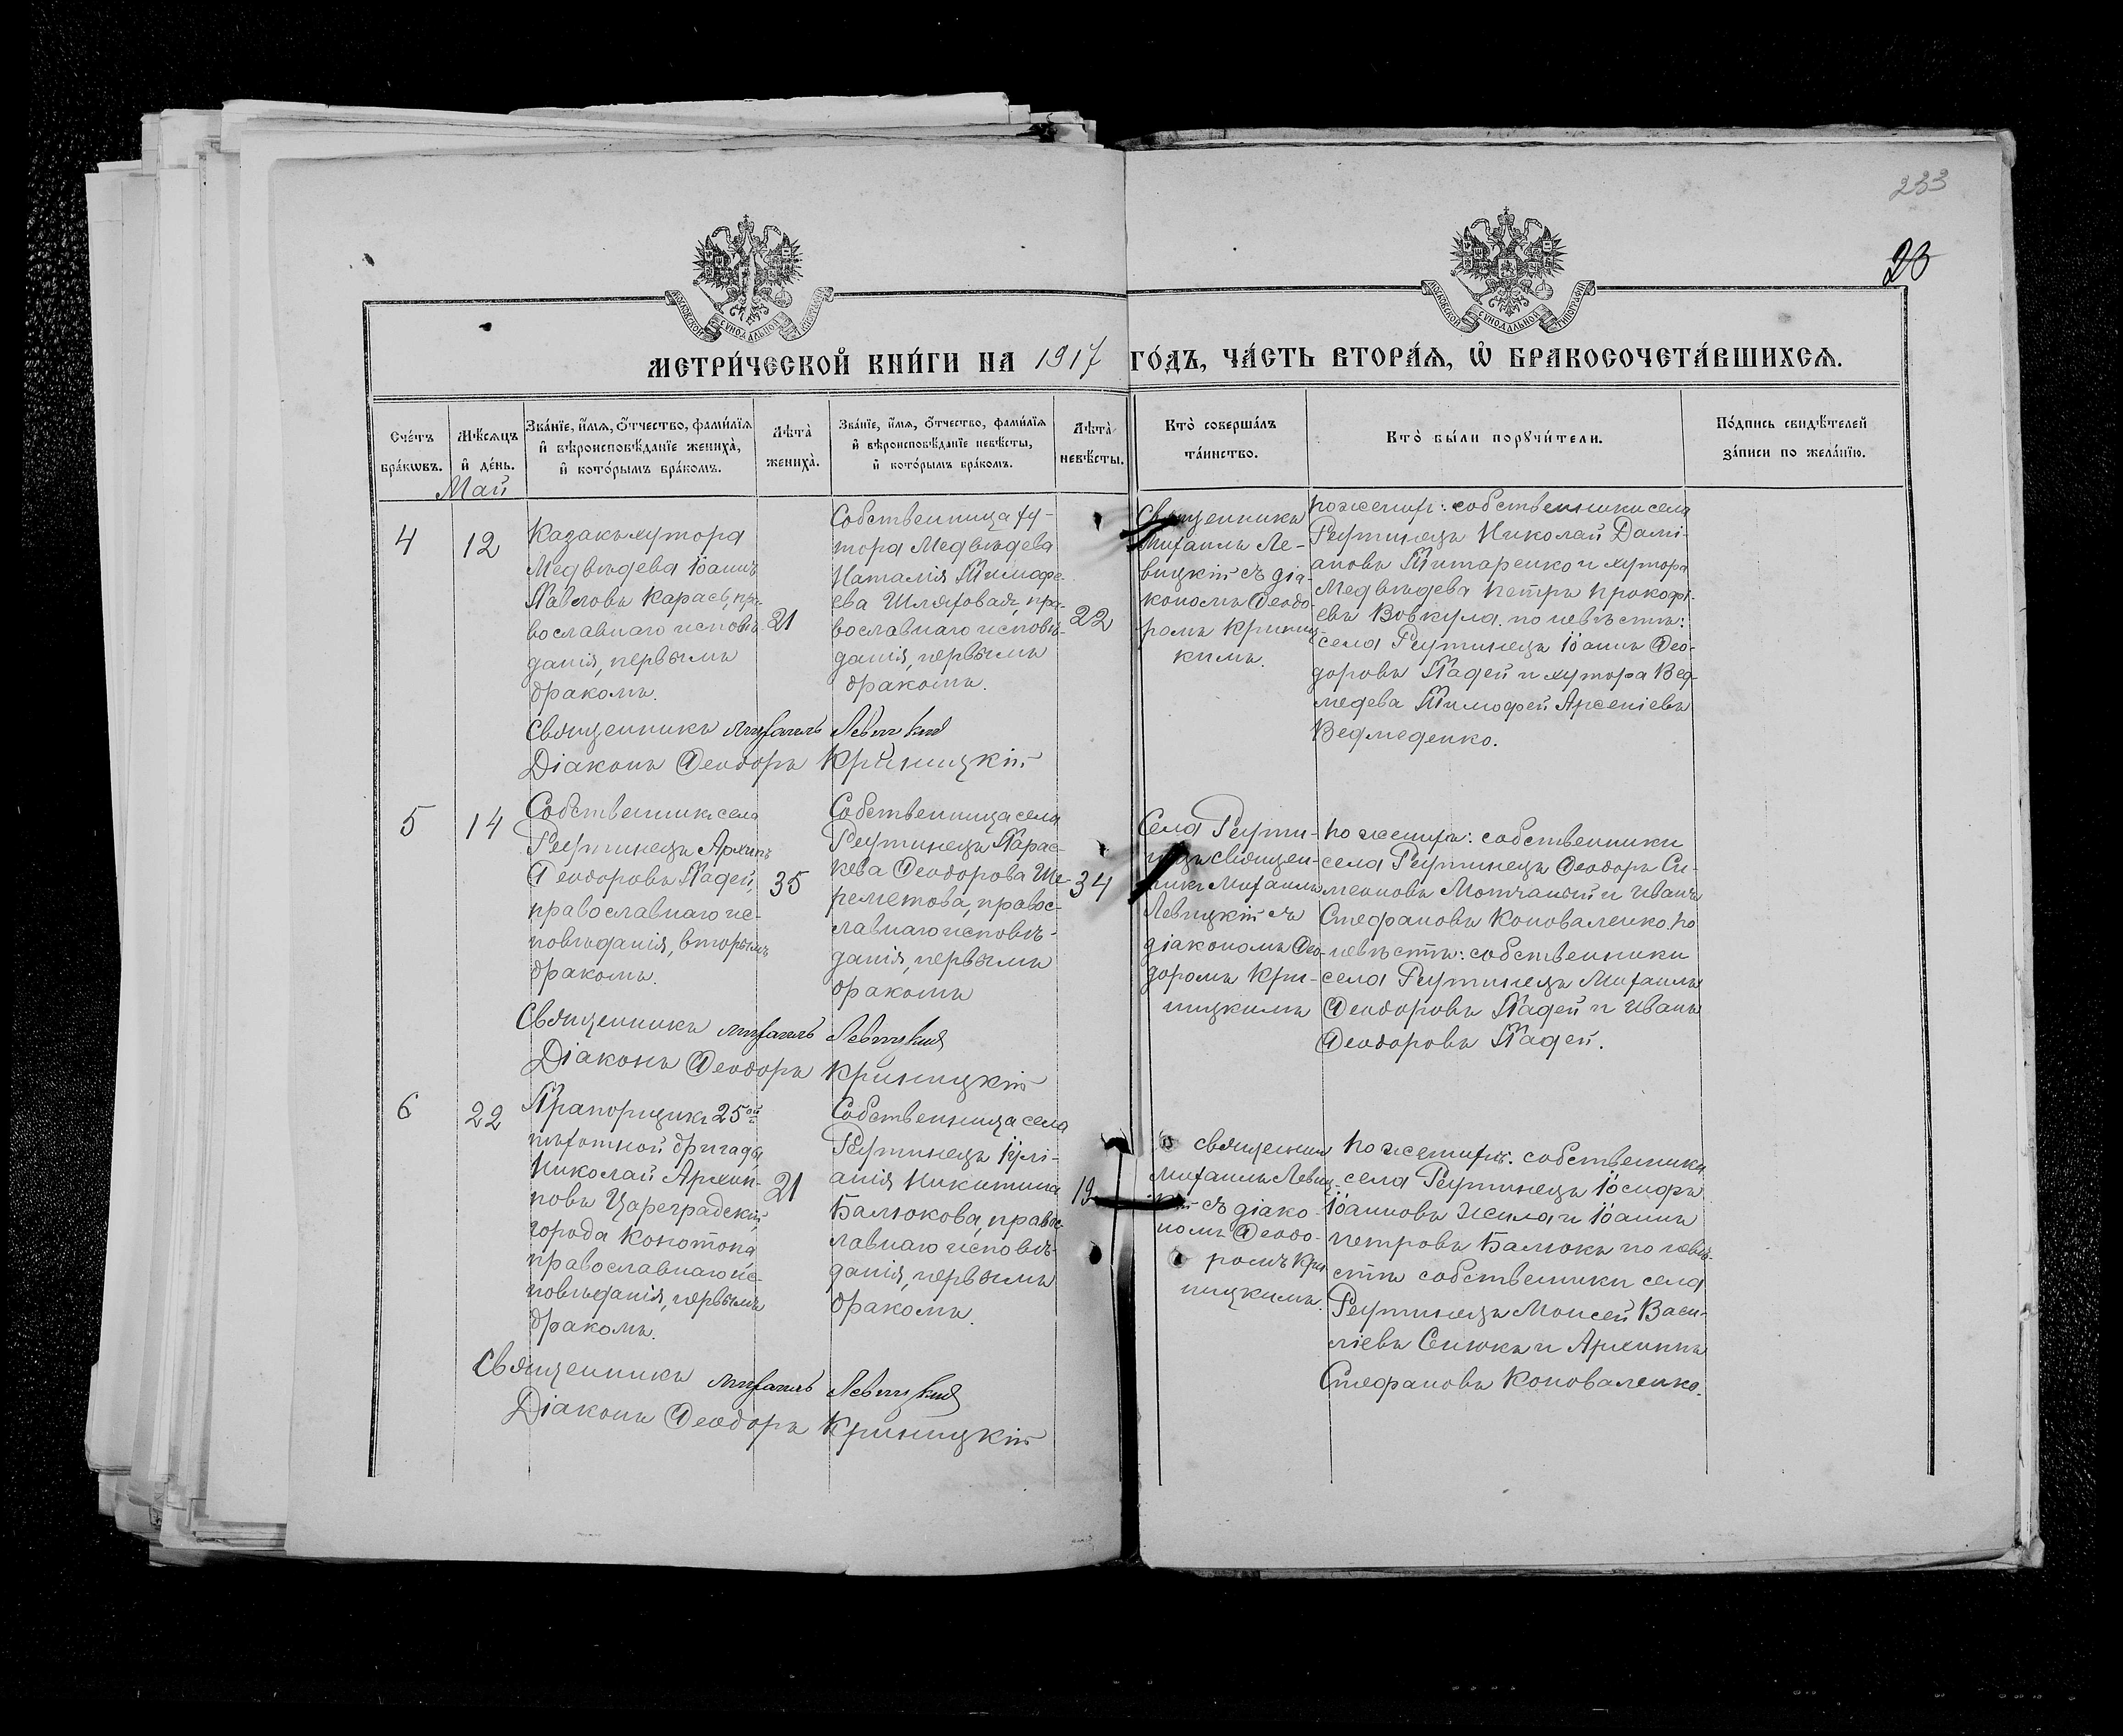 233
23
МОСКОВСКОЙ СѴНОДАЛЬНОЙ ТИПОГРАФІИ
МОСКОВСКОЙ СѴНОДАЛЬНОЙ ТИПОГРАФІИ
МЕТРИ́ЧЕСКОЙ КНИ́ГИ НА 1917 ГО́ДЪ, ЧА́СТЬ ВТОРА́Ѧ, Ѡ҆ БРАКОСОЧЕТА́ВШИХСѦ.
Сче́тъ
бра́кѡвъ.
Мѣ́сѧцъ
и҆ де́нь.
Зва́нїе, и҆́мѧ, ѻ҆́тчество, фами́лїѧ
и҆ вѣроисповѣ́данїе жениха̀,
и҆ кото́рымъ бра́комъ.
Лѣта̀
жениха̀.
Зва́нїе, и҆́мѧ, ѻ҆́тчество, фами́лїѧ
и҆ вѣроисповѣ́данїе невѣ́сты,
и҆ кото́рымъ бра́комъ.
Лѣта̀
невѣ́сты.
Кто̀ соверша́лъ
та́инство.
Кто̀ бы́ли порꙋчи́тели.
По́дпись свидѣ́телей
за́писи по жела́нїю.
Май
4
12
Казакъ хутора
Медвѣдева Іоаннъ
Павловъ Карась, пра-
вославнаго исповѣ-
данія, первымъ
бракомъ.
21
Собственница ху-
тора Медвѣдева
Наталія Тимофе-
ева Шляховая, пра-
вославнаго исповѣ-
данія, первымъ
бракомъ.
22
Священникъ
Михаилъ Ле-
вицкій съ діа-
кономъ Ѳеодо-
ромъ Криниц-
кимъ.
По женихѣ: собственники села
Реутинецъ Николай Дамі-
ановъ Титаренко и хутора
Медвѣдева Петръ Прокофі-
евъ Вовкула. по невѣстѣ:
села Реутинецъ Іоаннъ Ѳео-
доровъ Падей и хутора Вед-
медева Тимофей Арсеніевъ
Ведмеденко.
Священникъ Михаилъ Левицкій
Діаконъ Ѳеодоръ Криницкій
5
14
Собственникъ села
Реутинецъ Архипъ
Ѳеодоровъ Падей,
православнаго ис-
повѣданія, вторымъ
бракомъ.
35
Собственница села
Реутинецъ Парас-
кева Ѳеодорова Ше-
реметова, правос-
лавнаго исповѣ-
данія, первымъ
бракомъ
34
Села Реути-
нецъ священ-
никъ Михаилъ
Левицкій съ
діакономъ Ѳео-
доромъ Кри-
ницкимъ
По женихѣ: собственники
села Реутинецъ Ѳеодоръ Си-
меоновъ Мотчаный и Иванъ
Стефановъ Коноваленко. по
невѣстѣ: собственники
села Реутинецъ Михаилъ
Ѳеодоровъ Падей и Иванъ
Ѳеодоровъ Падей.
Священникъ Михаилъ Левицкій
Діаконъ Ѳеодоръ Криницкій
6
22
Прапорщикъ 25ой
пѣхотной бригады
Николай Архип-
повъ Цареградскій
города Конотопа
православнаго ис-
повѣданія, первымъ
бракомъ.
21
Собственница села
Реутинецъ Іулі-
анія Никитина
Балюкова, правос-
лавнаго исповѣ-
данія, первымъ
бракомъ.
19
священникъ
Михаилъ Левиц-
кій съ діако-
номъ Ѳеодо-
ромъ Кри
ницкимъ.
По женихѣ: собственники
села Реутинецъ Іосифъ
Іоанновъ и Іоаннъ
Петровъ Балюкъ по невѣ-
стѣ собственники села
Реутинецъ Моисей Васи-
ліевъ Сенюкъ и Архиппъ
Стефановъ Коноваленко.
Священникъ Михаилъ Левицкій
Діаконъ Ѳеодоръ Криницкій